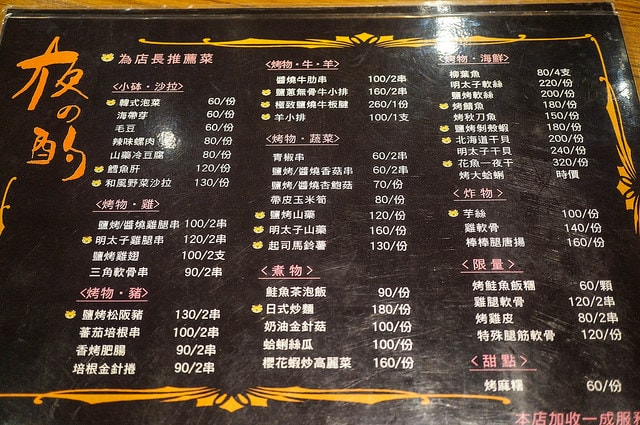 夜の酌
為店長推薦菜
<小砵·沙拉>
韓式泡菜 60/份
海帶芽 60/份
毛豆 60/份
辣味螺肉 80/份
山藥冷豆腐 80/份
鱈魚肝 120/份
和風野菜沙拉 130/份
<烤物·雞>
鹽烤/醬燒雞腿串 100/2串
明太子雞腿串 120/2串
鹽烤雞翅 100/2支
三角軟骨串 90/2串
<烤物·豬>
鹽烤松阪豬 130/2串
蕃茄培根串 100/2串
香烤肥腸 90/2串
培根金針捲 90/2串
<烤物·牛·羊>
醬燒牛肋串 100/2串
鹽蔥無骨牛小排 160/2串
極致鹽燒牛板腱 260/1份
羊小排 100/1支
<烤物·蔬菜>
青椒串 60/2串
鹽烤/醬燒香菇串 60/2串
鹽烤/醬燒杏鮑菇 70/份
帶皮玉米筍 80/份
鹽烤山藥 120/份
明太子山藥 160/份
起司馬鈴薯 130/份
<煮物>
鮭魚茶泡飯 90/份
日式炒麵 180/份
奶油金針菇 100/份
蛤蜊絲瓜 100/份
櫻花蝦炒高麗菜 160/份
<烤物·海鮮>
柳葉魚 80/4支
明太子軟絲 220/份
鹽烤軟絲 200/份
烤鯖魚 180/份
烤秋刀魚 150/份
鹽烤剝殼蝦 180/份
北海道干貝 200/份
明太子干貝 240/份
花魚一夜干 320/份
烤大蛤蜊 時價
<炸物>
芋絲 100/份
雞軟骨 140/份
棒棒腿唐揚 160/份
<限量>
烤鮭魚飯糰 60/顆
雞腿軟骨 120/2串
烤雞皮 80/2串
特殊腿筋軟骨 120/份
<甜點>
烤麻糬 60/份
本店加收一成服務